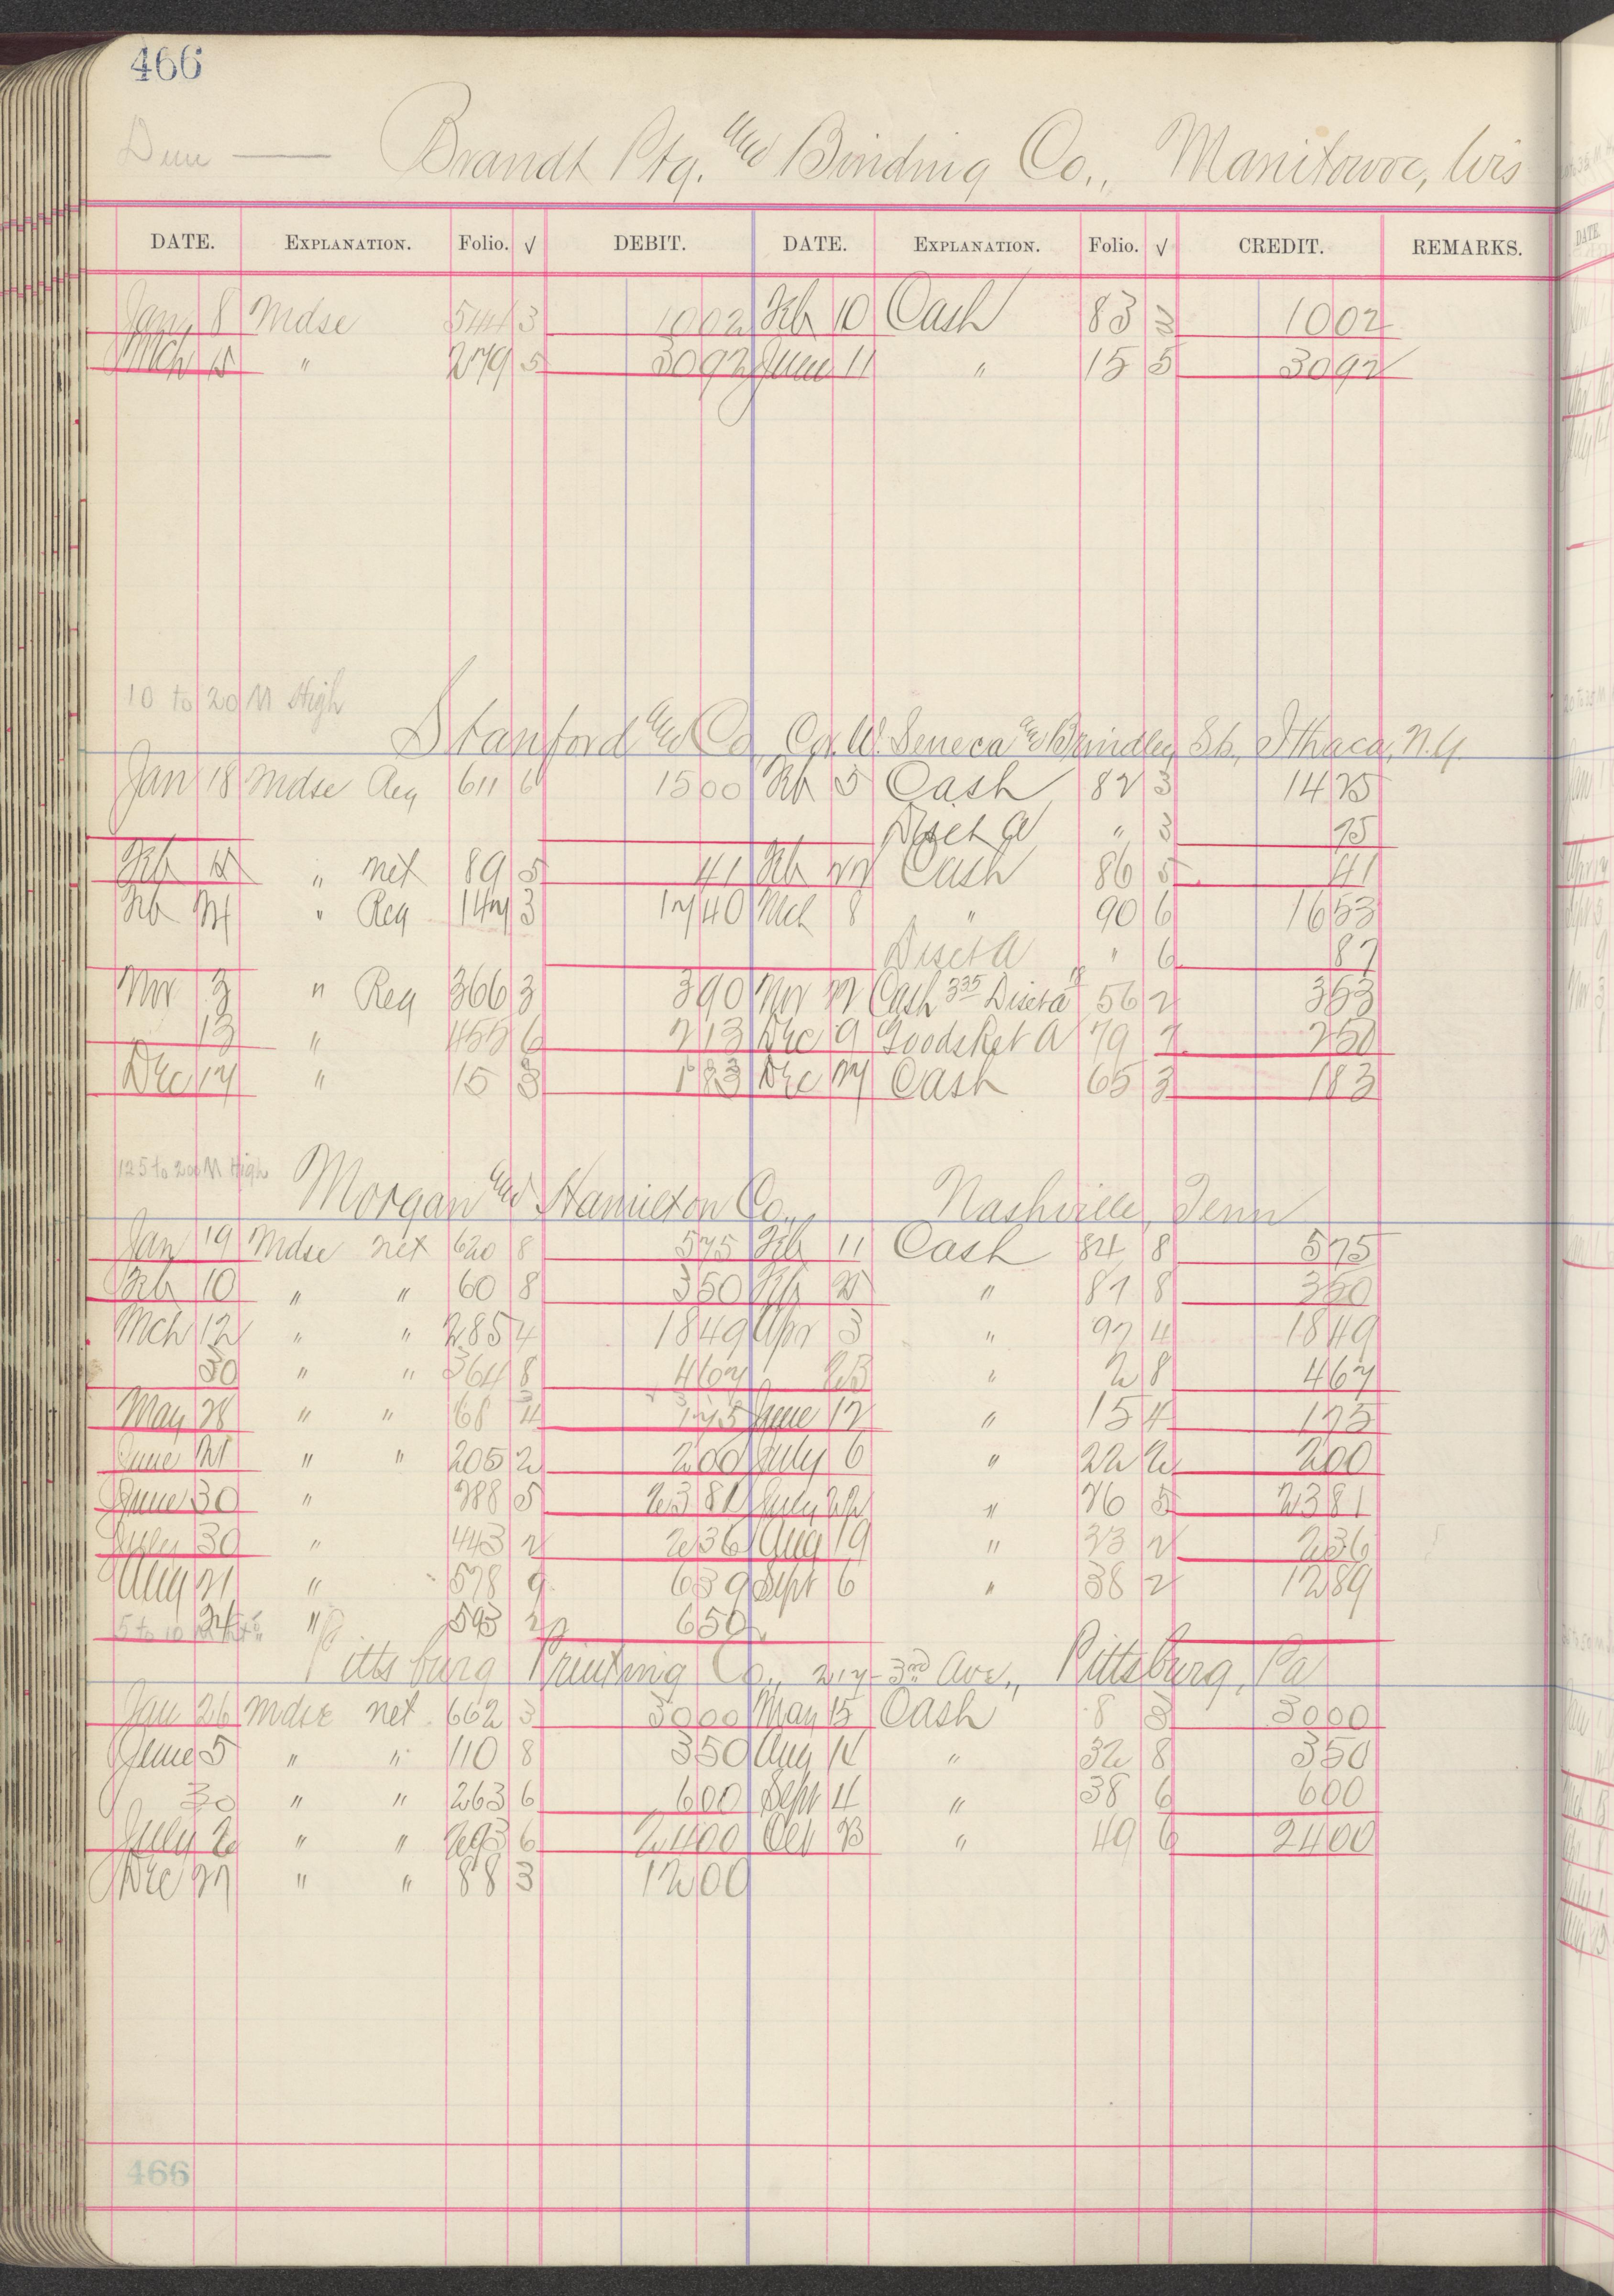 466
Dun — Brandt Ptg. and Binding Co., Manitowoc, Wis
DATE. EXPLANATION. Folio. √ DEBIT. DATE. EXPLANATION. Folio. √ CREDIT. REMARKS.
Jan 8 Mdse 544 3 1002 Feb 10 Cash 83 3 1002
Mch 15 " 279 5 3092 June 11 " 15 5 3092
10 to 20 M High
Stanford and Co Cor. W. Seneca and Brindley Sts, Ithaca, N.Y.
Jan 18 Mdse Reg 611 6 1500 Feb 5 Cash 82 3 1425
Disct a " 3 75
Feb " net 89 5 41 Feb Cash 86 5 41
Feb " Reg 147 3 1740 Mch 8 " 90 6 1653
Disct a " 6 87
Nov 3 " Reg 366 3 390 Nov Cash Disct a 56 2 353
13 " 455 6 213 Dec 9 Goodsret a 79 2 250
Dec 17 " 15 3 183 Dec 27 Cash 65 3 183
125 to 200 M High
Morgan and Hamilton Co., Nashville, Tenn
Jan 19 Mdse net 620 8 575 Feb 11 Cash 84 8 575
Feb 10 " " 60 8 350 " 87 8 350
Mch 12 " " 285 4 1849 Apr 3 " 97 4 1849
30 " " 364 8 467 " 2 8 467
May 28 " " 68 4 175 June 12 " 15 4 175
June 21 " " 205 2 200 July 6 " 22 2 200
June 30 " 288 5 2381 July 22 " 26 5 2381
July 30 " 443 2 236 Aug 19 " 33 2 236
Aug 21 " 578 9 639 Sept 6 " 38 2 1289
24 " 593 2 650
5 to 10
Pittsburg Printing Co., 217-3rd Ave., Pittsburg, Pa
Jan 26 Mdse net 662 3 3000 May 15 Cash 8 3 3000
June 5 " " 110 8 350 Aug 14 " 32 8 350
30 " " 263 6 600 Sept 4 " 38 6 600
July 2 " " 293 6 2400 Oct 23 " 49 6 2400
Dec 27 " " 88 3 1200
466